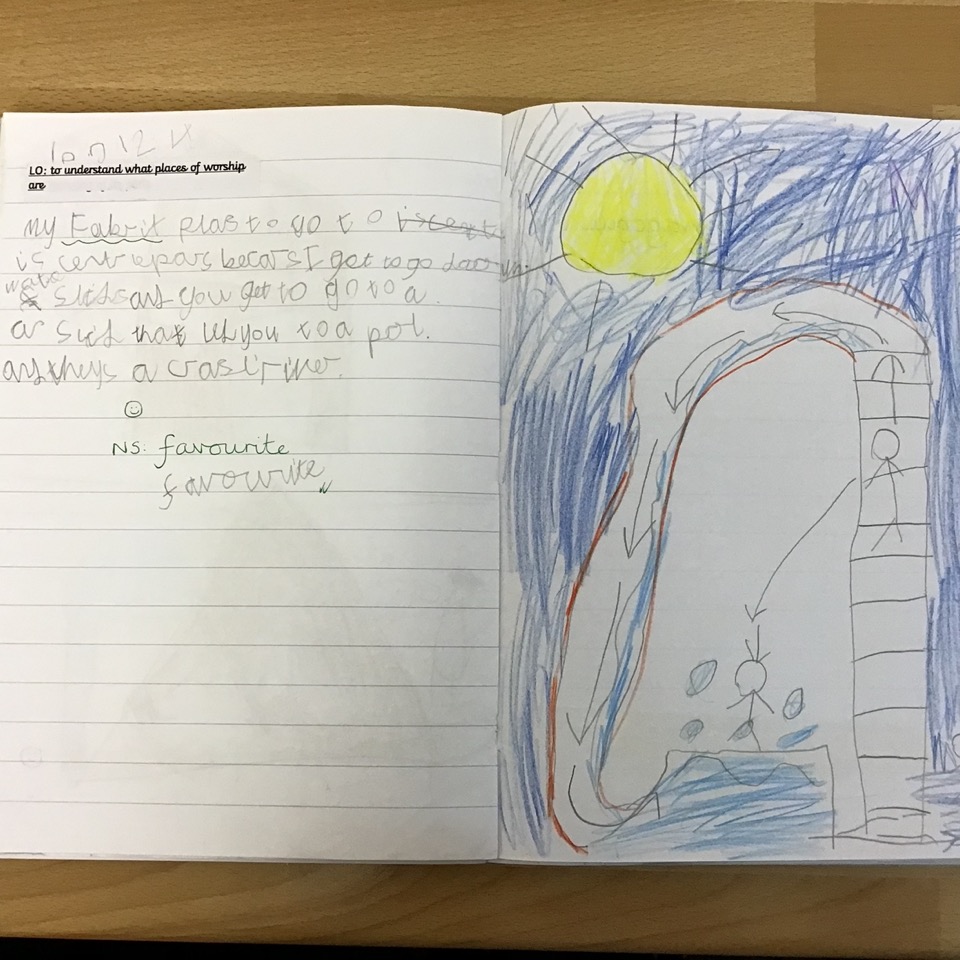 LO: to understand what places of worship
are
My Fabrit plas to go to
is centrepars becars I get to go down
water
slids and you get to go to a
a slid that let you to a pol.
and theys a
NS: favourite
favourite